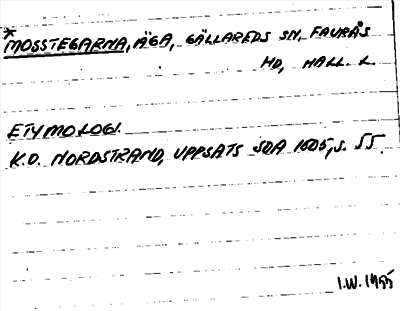 *MOSSTEGARNA, ÄGA, GÄLLAREDS SN, FAURÅS
HD, HALL. L.
ETYMOLOGI.
K.O. NORDSTRAND, UPPSATS SOA 1605, S. 55.
I.W. 1955